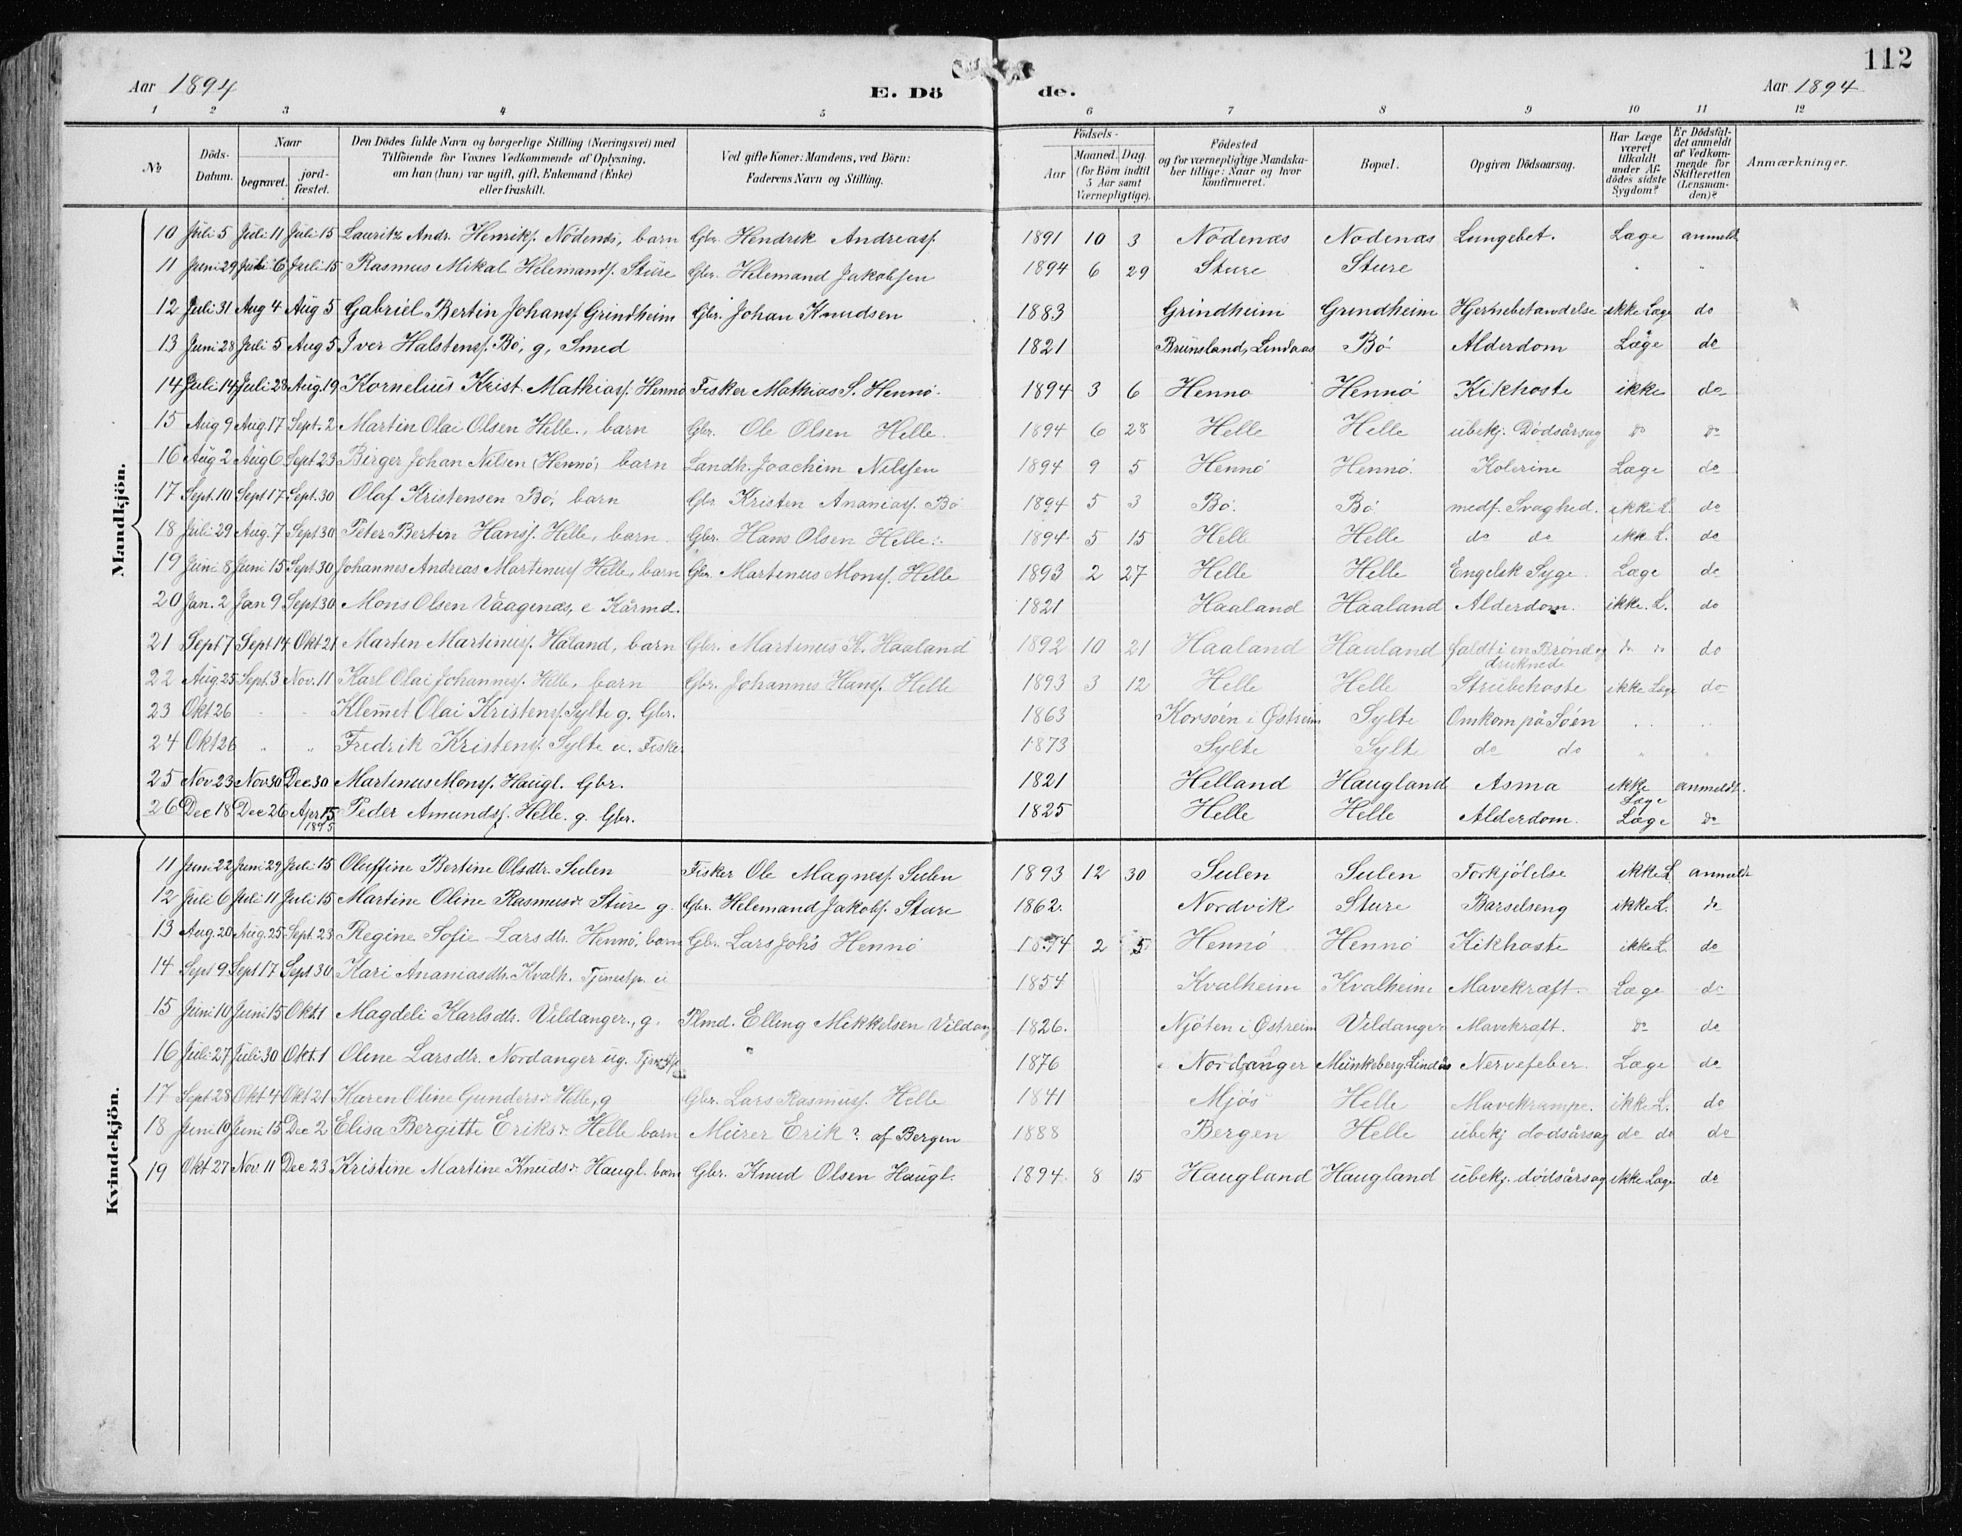 112
Aar 1894 E. Döde. Aar 1894
1 2 3 4 5 6 7 8 9 10 11 12
№ Döds-Datum. Naar begravet. jordfæstet. Den Dödes fulde Navn og borgerlige Stilling (Næringsvei) med Tilföiende for Voxnes Vedkommende af Oplysning, om han (hun) var ugift, gift, Enkemand (Enke) eller fraskilt. Ved gifte Koner: Mandens, ved Börn: Faderens Navn og Stilling. Födsels- Aar Maaned. Dag. (for Börn indtil 5 Aar samt Værnepligtige). Födested og for værnepligtige Mandskaber tillige: Naar og hvor konfirmeret. Bopæl. Opgiven Dödsaarsag. Har Læge været tilkaldt under Afdödes sidste Sygdom? Er Dödsfaldet anmeldt af Vedkommende for Skifteretten (Lensmanden)? Anmærkninger.
Mandkjön.
10 Juli 5 Juli 11 Juli 15 Lauritz Andr. Henriks. Nödenæs, barn Gbr. Hendrik Andreass. 1891 10 3 Nödenæs Nodenæs Lungebet. Læge anmeldt
11 Juni 29 Juli 6 Juli 15 Rasmus Mikal Helemands. Sture Gbr. Helemand Jakobsen 1894 6 29 Sture Sture " "
12 Juli 31 Aug 4 Aug 5 Gabriel Bertin Johans. Grindheim Gbr. Johan Knudsen 1883 Grindheim Grindheim Hjernebetændelse ikke Læge do
13 Juni 28 Juli 5 Aug 5 Iver Halstens. Bö, g, Smed 1821 Brunsland, Lindaas Bö Alderdom Læge do
14 Juli 14 Juli 28 Aug. 19 Kornelius Krist. Mathias. Hennö Fisker Mathias S. Hennö. 1894 3 6 Henno Hennö Kikhoste ikke do
15 Aug 9 Aug 17 Sept. 2 Martin Olai Olsen Helle, barn Gbr. Ole Olsen Helle. 1894 6 28 Helle Helle ubekj. Dödsårsag do do
16 Aug 2 Aug 6 Sept 23 Birger Johan Nilsen Hennö, barn Landh. Joachim Nilssen 1894 9 5 Hennö Hennö. Kolerine Læge do
17 Sept. 10 Sept 17 Sept. 30 Olaf Kristensen Bö, barn Gbr Kristen Ananias. Bö 1894 5 3 Bö. Bö medf. Svaghed. ikke L. do
18 Juli 29 Aug. 7 Sept 30 Peter Bertin Hans. Helle, barn Gbr. Hans Olsen Helle. 1894 5 15 Helle Helle do do ikke L. do
19 Juni 8 Juni 15 Sept. 30 Johannes Andreas Martinus. Helle, barn Gbr. Martinus Mons. Helle 1893 2 27 Helle Helle Engelsk Syge. Læge do
20 Jan. 2 Jan 9 Sept. 30 Mons Olsen Vaagenæs, e Kårmd. 1821 Haaland Haaland Alderdom. ikke. L. do
21 Sept 7 Sept 14 Okt 21 Marten Martinus. Håland, barn Gbr. Martinus K. Haaland 1892 10 21 Haaland Haaland faldt i en Brønd og druknede do do do
22 Aug. 25 Sept. 3 Nov. 11 Karl Olai Johannes. Helle, barn Gbr. Johannes Hans. Helle 1893 3 12 Helle Helle Strubehoste ikke Læge do
23 Okt 26 " " Klemet Olai Kristens. Sylte g. Gbr. 1863 Korsöen i Østreim Sylte Omkom på Söen " "
24 Okt 26 " " Fredrik Kristens. Sylte u. Fisker 1873 Sylte Sylte do do " "
25 Nov 23 Nov 30 Dec 30 Martinus Mons. Haugl. Gbr. 1821 Helland Haugland Asma ikke Læge anmeldt.
26 Dec 18 Dec 26 Apr 15 1895 Peder Amunds. Helle. g. Gbr. 1825 Helle Helle Alderdom. Læge do
Kvindekjön.
11 Juni 22 Juni 29 Juli 15 Oluffine Bertine Olsdtr. Sulen Fisker Ole Magnes. Sulen 1893 12 30 Sulen Sulen Forkjölelse ikke L anmeldt
12 Juli 6 Juli 11 Juli 15 Martine Oline Rasmusdr. Sture g. Gbr. Helemand Jakobs. Sture 1862. Nordvik Sture Barselseng ikke L. do
13 Aug. 20 Aug. 25 Sept. 23 Regine Sofie Larsdtr. Hennö, barn Gbr. Lars Johs Hennö 1894 2 5 Hennö Hennö Kikhoste ikke L. do
14 Sept 9 Sept 17 Sept 30 Kari Ananiasdtr. Kvalh. Tjenestp. u 1854 Kvalheim Kvalheim Mavekræft. Læge do
15 Juni 10 Juni 15 Okt 1 Magdeli Karlsdtr. Vildanger, g. Plmd. Elling Mikkelsen Vildang 1826. Njöten i Østreim Vildanger Mavekræft. do do
16 Juli 27 Juli 30 Okt. 1 Oline Larsdtr. Nordanger ug. 1876 Nordanger Munkeberg, Lindås Nervefeber. Læge do
17 Sept 28 Okt 4 Okt 21 Karen Oline Gundersdr. Helle, g Gbr. Lars Rasmus. Helle 1841 Mjös Helle Mavekrampe. ikke L. do
18 Juni 10 Juni 15 Dec 2 Elisa Bergitte Eriksdr. Helle barn Murer Erik? af Bergen 1888 Bergen Helle ubekj dodsårsag do do do
19 Okt 27 Nov. 11 Dec 23 Kristine Martine Knudsdr. Haugl. barn Gbr. Knud Olsen Haugl. 1894. 8 15 Haugland Haugland ubekj. dödsårsag ikke Læge do